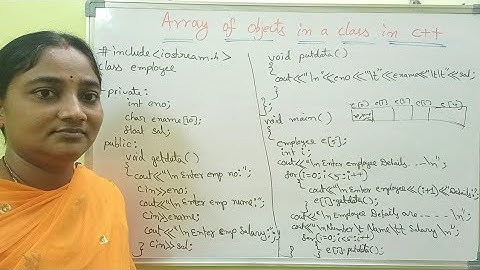 Array of objects in a class in c++
#include<iostream.h>
class employee
{
private:
int eno;
char ename[10];
float sal;
public:
void getdata()
{
cout<<"\n Enter emp no:";
cin>>eno;
cout<<"\n Enter emp name:";
cin>>ename;
cout<<"\n Enter emp Salary:";
cin>>sal;
}
void putdata()
{
cout<<"\n"<<eno<<"\t"<<ename<<"\t\t"<<sal;
}
};
void main()
{
employee e[5];
int i;
cout<<"\n Enter employee Details ...\n";
for(i=0;i<5;i++)
{
cout<<"\n Enter employee<<(i+1)<<Details:";
e[i].getdata();
}
cout<<"\n Employee Details are - - - - \n";
cout<<"\n Number\t Name\t\t Salary\n";
for(i=0;i<5;i++)
{ e[i].putdata();
}
}
e[0] e[1] e[2] e[3] e[4]